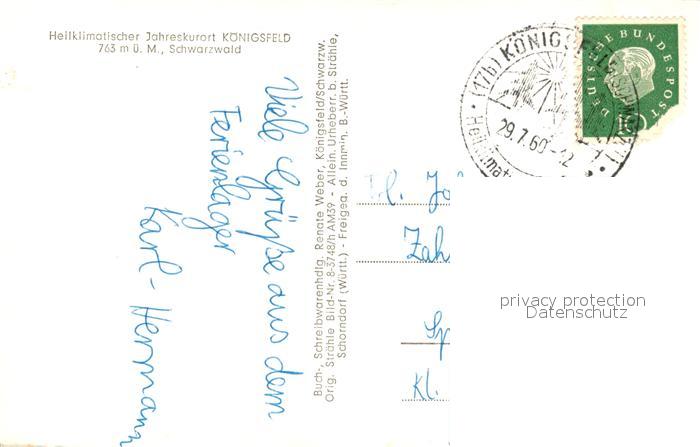 Heilklimatischer Jahreskurort KÖNIGSFELD
763 m ü. M., Schwarzwald
Viele Grüße aus dem
Ferienlager
Karl-Herrmann
Buch-, Schreibwarenhdlg. Renate Weber, Königsfeld/Schwarzw.
Orig. Strähle Bild-Nr. 8-3748/h AM39 - Allein. Urheberr. b. Strähle,
Schorndorf (Württ.) - Freigea. d. Innmin. B.-Württ.
(17b) KÖNIGSFELD
29.7.60-12
DEUTSCHE BUNDESPOST
10
Zah
Kl.
privacy protection
Datenschutz